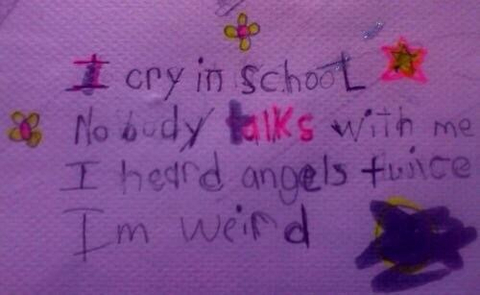 I cry in school
Nobody talks with me
I heard angels twice
Im weird